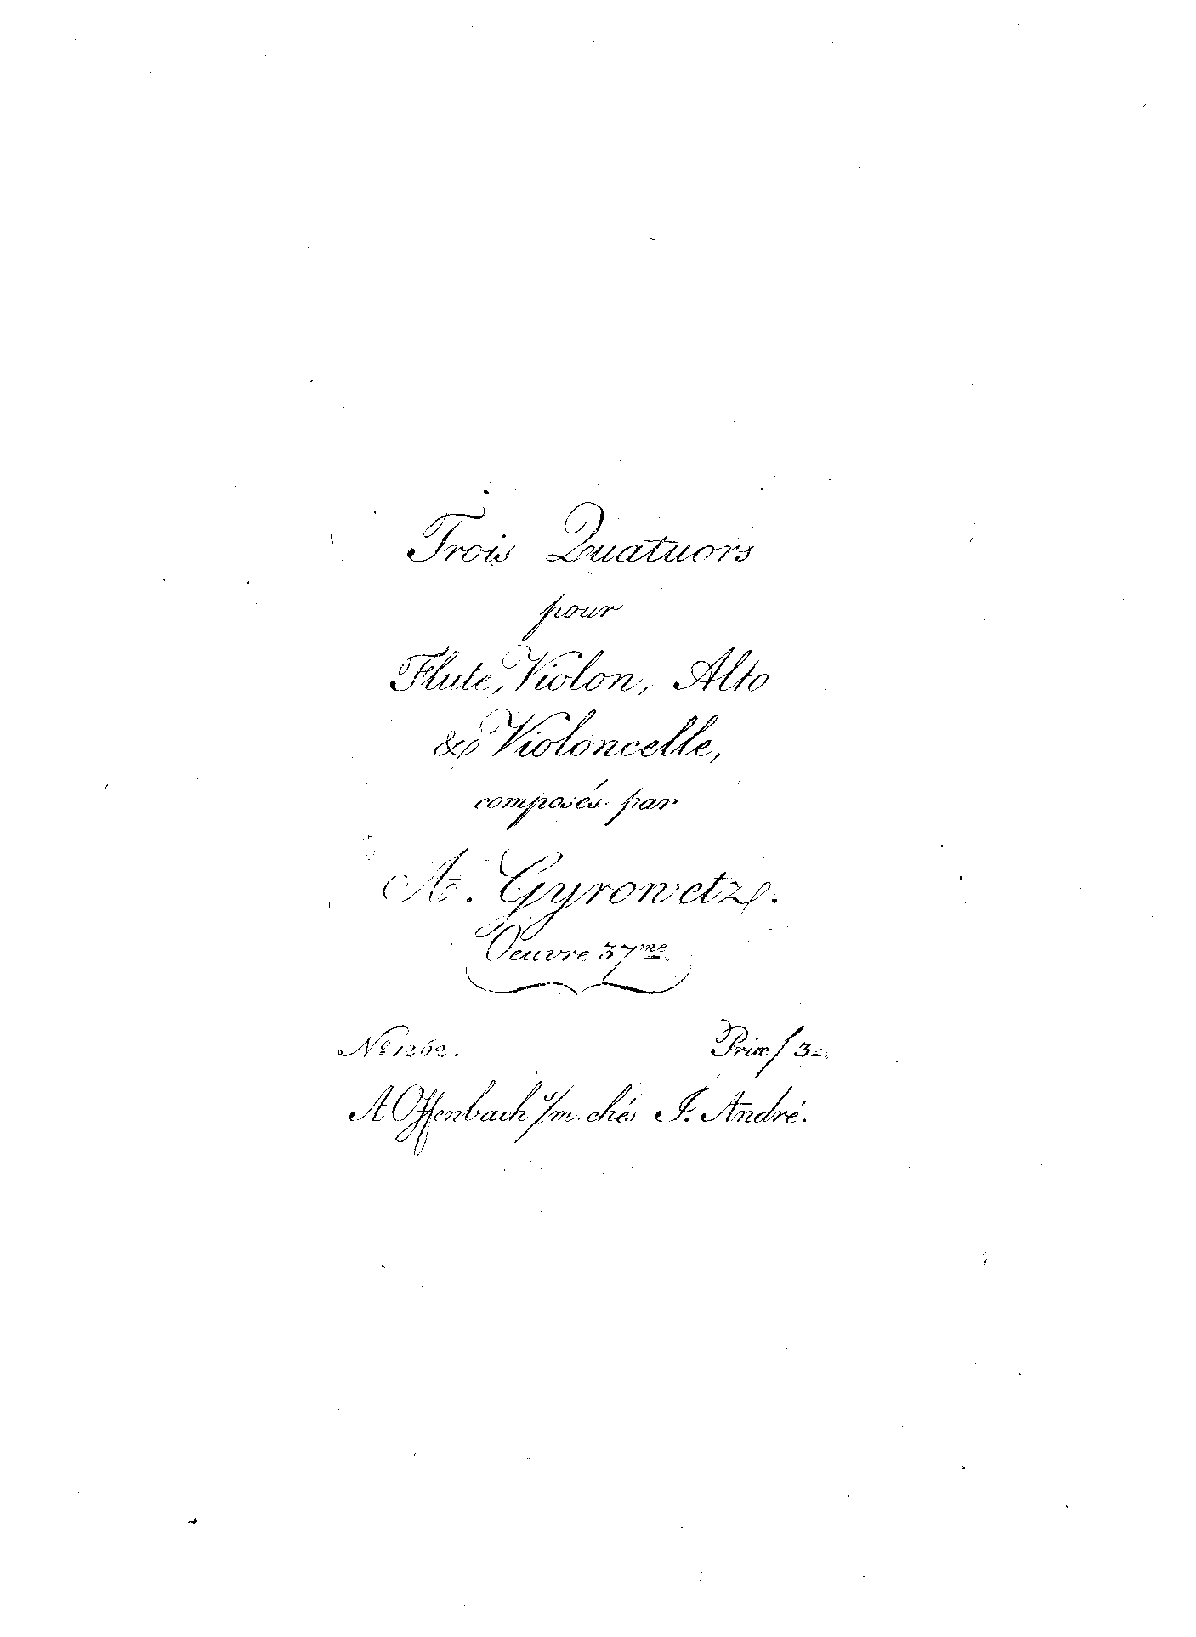 Trois Quatuors
pour
Flute, Violon, Alto
& Violoncelle,
composés par
A. Gyrowetz.
Oeuvre 37me
No 1262. Prix f 3=
A Offenbach s/m. chés J. André.